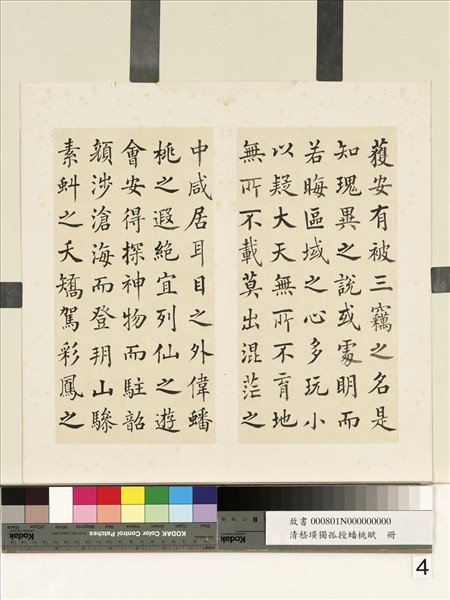 獲安有被三竊之名是
知瑰異之說或處明而
若晦區域之心多玩小
以疑大天無所不育地
無所不載莫出混茫之
中咸居耳目之外偉蟠
桃之遐絕宜列仙之遊
會安得探神物而駐韶
顏涉滄海而登玥山驂
素虯之夭矯駕彩鳳之
KODAK Color Control Patches
Kodak
Kodak
故書 000801N000000000
清嵇璜獨孤授蟠桃賦 冊
4